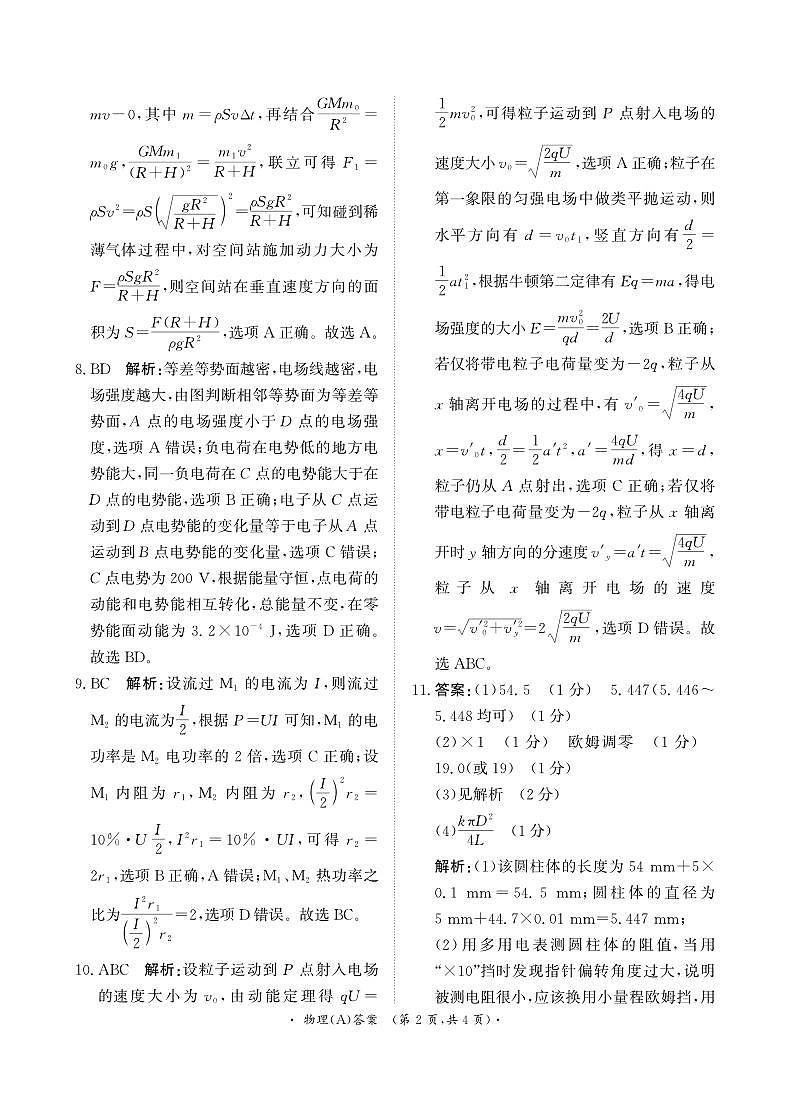 mv－0,其中 m＝ρSvΔt,再结合 \frac{GMm_0}{R^2}＝
m_0g, \frac{GMm_1}{(R＋H)^2}＝\frac{m_1v^2}{R＋H},联立可得 F_1＝
ρSv^2＝ρS(\sqrt{\frac{gR^2}{R＋H}})^2＝\frac{ρSgR^2}{R＋H},可知碰到稀
薄气体过程中,对空间站施加动力大小为
F＝\frac{ρSgR^2}{R＋H},则空间站在垂直速度方向的面
积为 S＝\frac{F(R＋H)}{ρgR^2},选项 A 正确。故选 A。
8. BD 解析:等差等势面越密,电场线越密,电
场强度越大,由图判断相邻等势面为等差等
势面,A 点的电场强度小于 D 点的电场强
度,选项 A 错误;负电荷在电势低的地方电
势能大,同一负电荷在 C 点的电势能大于在
D 点的电势能,选项 B 正确;电子从 C 点运
动到 D 点电势能的变化量等于电子从 A 点
运动到 B 点电势能的变化量,选项 C 错误;
C 点电势为 200 V,根据能量守恒,点电荷的
动能和电势能相互转化,总能量不变,在零
势能面动能为 3.2×10^{－4} J,选项 D 正确。
故选 BD。
9. BC 解析:设流过 M_1 的电流为 I,则流过
M_2 的电流为 \frac{I}{2},根据 P＝UI 可知,M_1 的电
功率是 M_2 电功率的 2 倍,选项 C 正确;设
M_1 内阻为 r_1,M_2 内阻为 r_2,(\frac{I}{2})^2r_2＝
10%·U\frac{I}{2},I^2r_1＝10%·UI,可得 r_2＝
2r_1,选项 B 正确,A 错误;M_1、M_2 热功率之
比为 \frac{I^2r_1}{(\frac{I}{2})^2r_2}＝2,选项 D 错误。故选 BC。
10. ABC 解析:设粒子运动到 P 点射入电场
的速度大小为 v_0,由动能定理得 qU＝
\frac{1}{2}mv_0^2,可得粒子运动到 P 点射入电场的
速度大小 v_0＝\sqrt{\frac{2qU}{m}},选项 A 正确;粒子在
第一象限的匀强电场中做类平抛运动,则
水平方向有 d＝v_0t_1,竖直方向有 \frac{d}{2}＝
\frac{1}{2}at_1^2,根据牛顿第二定律有 Eq＝ma,得电
场强度的大小 E＝\frac{mv_0^2}{qd}＝\frac{2U}{d},选项 B 正确;
若仅将带电粒子电荷量变为－2q,粒子从
x 轴离开电场的过程中,有 v'_0＝\sqrt{\frac{4qU}{m}},
x＝v'_0t,\frac{d}{2}＝\frac{1}{2}a't^2,a'＝\frac{4qU}{md},得 x＝d,
粒子仍从 A 点射出,选项 C 正确;若仅将
带电粒子电荷量变为－2q,粒子从 x 轴离
开时 y 轴方向的分速度 v'_y＝a't＝\sqrt{\frac{4qU}{m}},
粒子从 x 轴离开电场的速度
v＝\sqrt{v'^2_0＋v'^2_y}＝2\sqrt{\frac{2qU}{m}},选项 D 错误。故
选 ABC。
11. 答案:(1)54.5 (1 分) 5.447(5.446～
5.448 均可) (1 分)
(2)×1 (1 分) 欧姆调零 (1 分)
19.0(或 19) (1 分)
(3)见解析 (2 分)
(4)\frac{kπD^2}{4L} (1 分)
解析:(1)该圆柱体的长度为 54 mm＋5×
0.1 mm＝54.5 mm;圆柱体的直径为
5 mm＋44.7×0.01 mm＝5.447 mm;
(2)用多用电表测圆柱体的阻值,当用
“×10”挡时发现指针偏转角度过大,说明
被测电阻很小,应该换用小量程欧姆挡,用
·物理(A)答案 (第 2 页,共 4 页)·